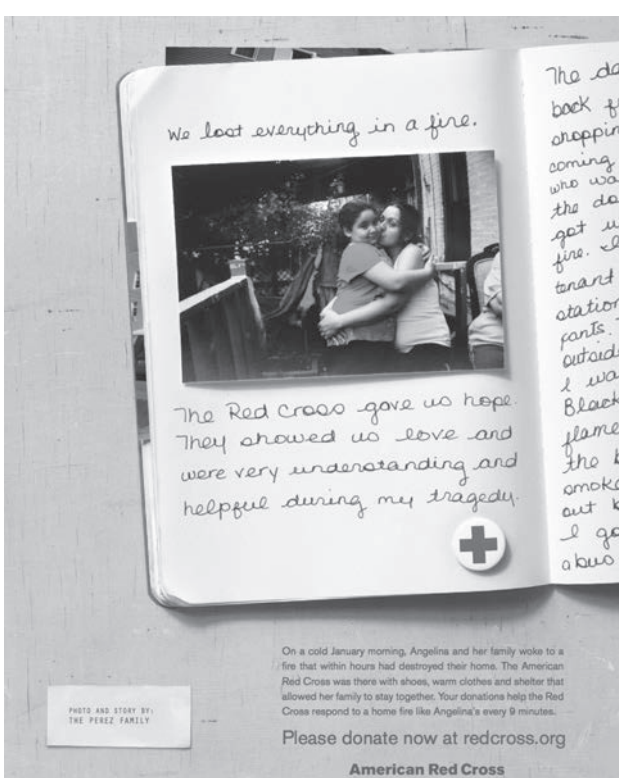 We lost everything in a fire.
The Red Cross gave us hope.
They showed us love and
were very understanding and
helpful during my tragedy.
The da
back f
shoppin
coming
who wa
the do
got u
fire. I
tenant
station
pants.
outside
I wa
Black
flame
the b
smoke
out b
I go
abus
On a cold January morning, Angelina and her family woke to a
fire that within hours had destroyed their home. The American
Red Cross was there with shoes, warm clothes and shelter that
allowed her family to stay together. Your donations help the Red
Cross respond to a home fire like Angelina's every 9 minutes.
PHOTO AND STORY BY:
THE PEREZ FAMILY
Please donate now at redcross.org
American Red Cross